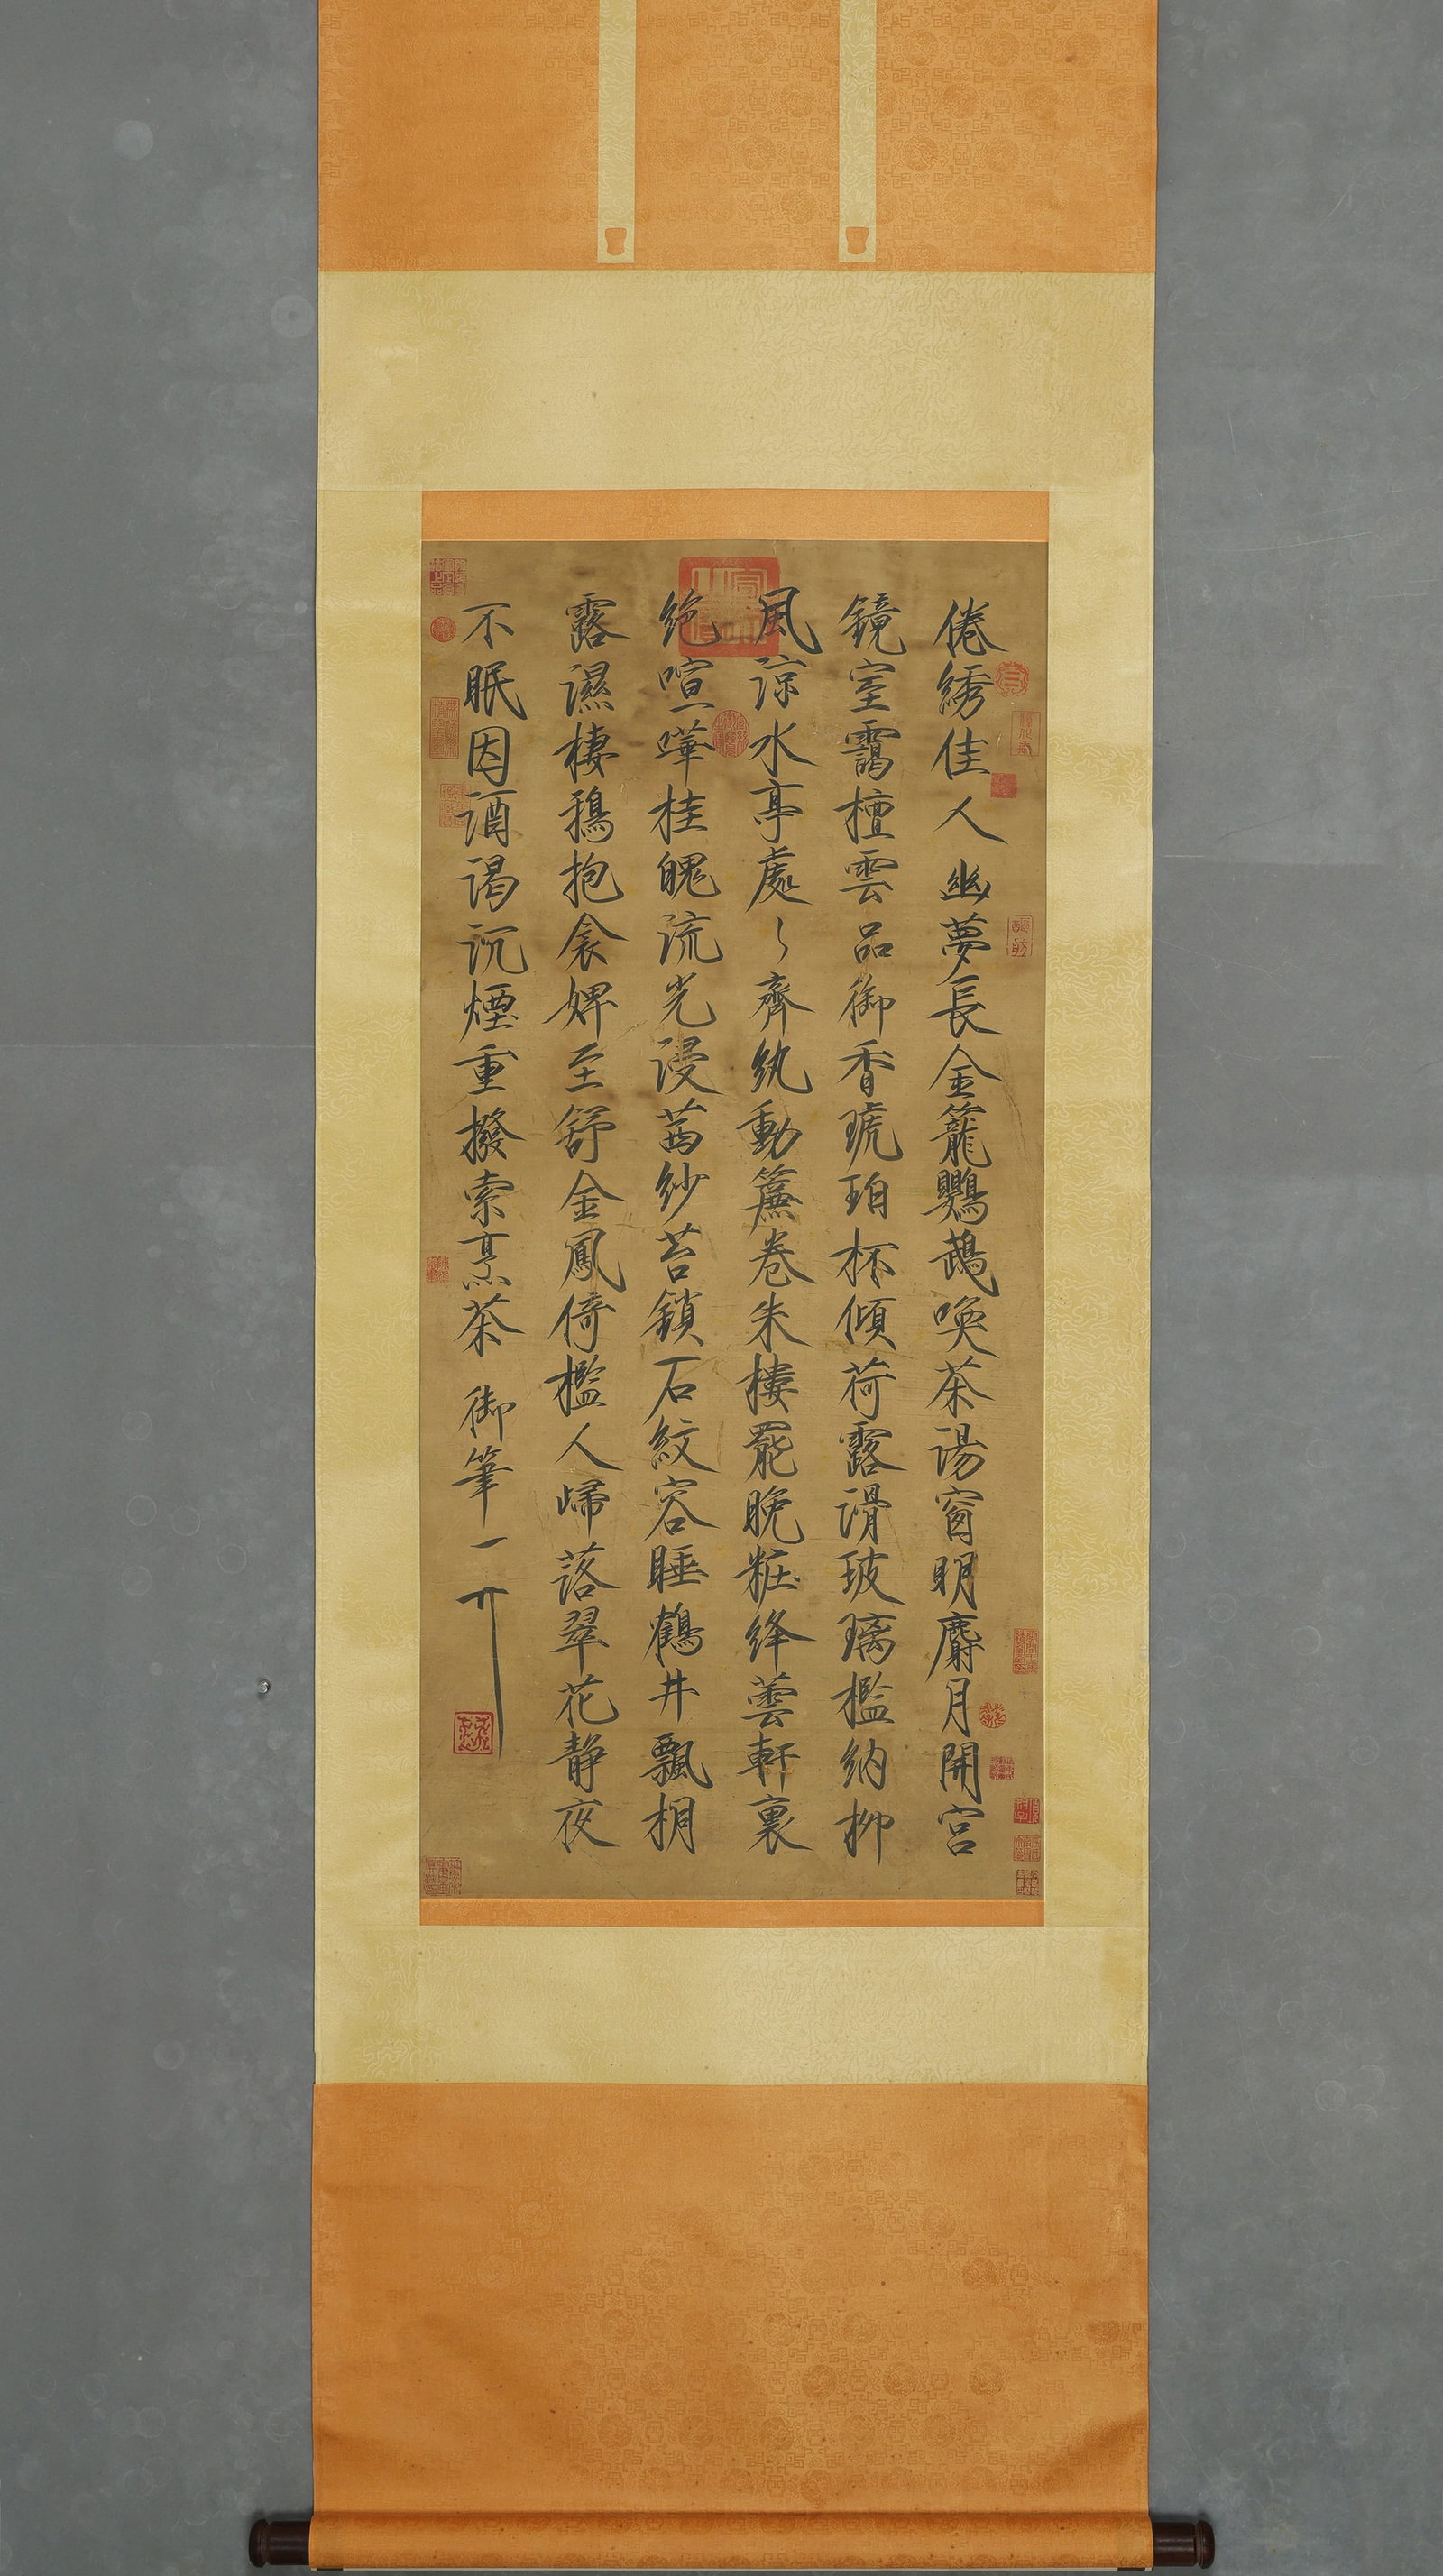 倦綉佳人幽夢長金籠鸚鵡喚茶湯窗明麝月開宮
鏡室靄檀雲品御香琥珀杯傾荷露滑玻璃檻納柳
風涼水亭處〻齊紈動簾卷朱樓罷晚粧絳蕓軒裏
绝喧嘩桂魄流光浸茜紗苔鎖石紋容睡鶴井飄桐
露濕棲鴉抱衾婢至舒金鳳倚檻人歸落翠花静夜
不眠因酒渴沉煙重撥索烹茶 御筆一